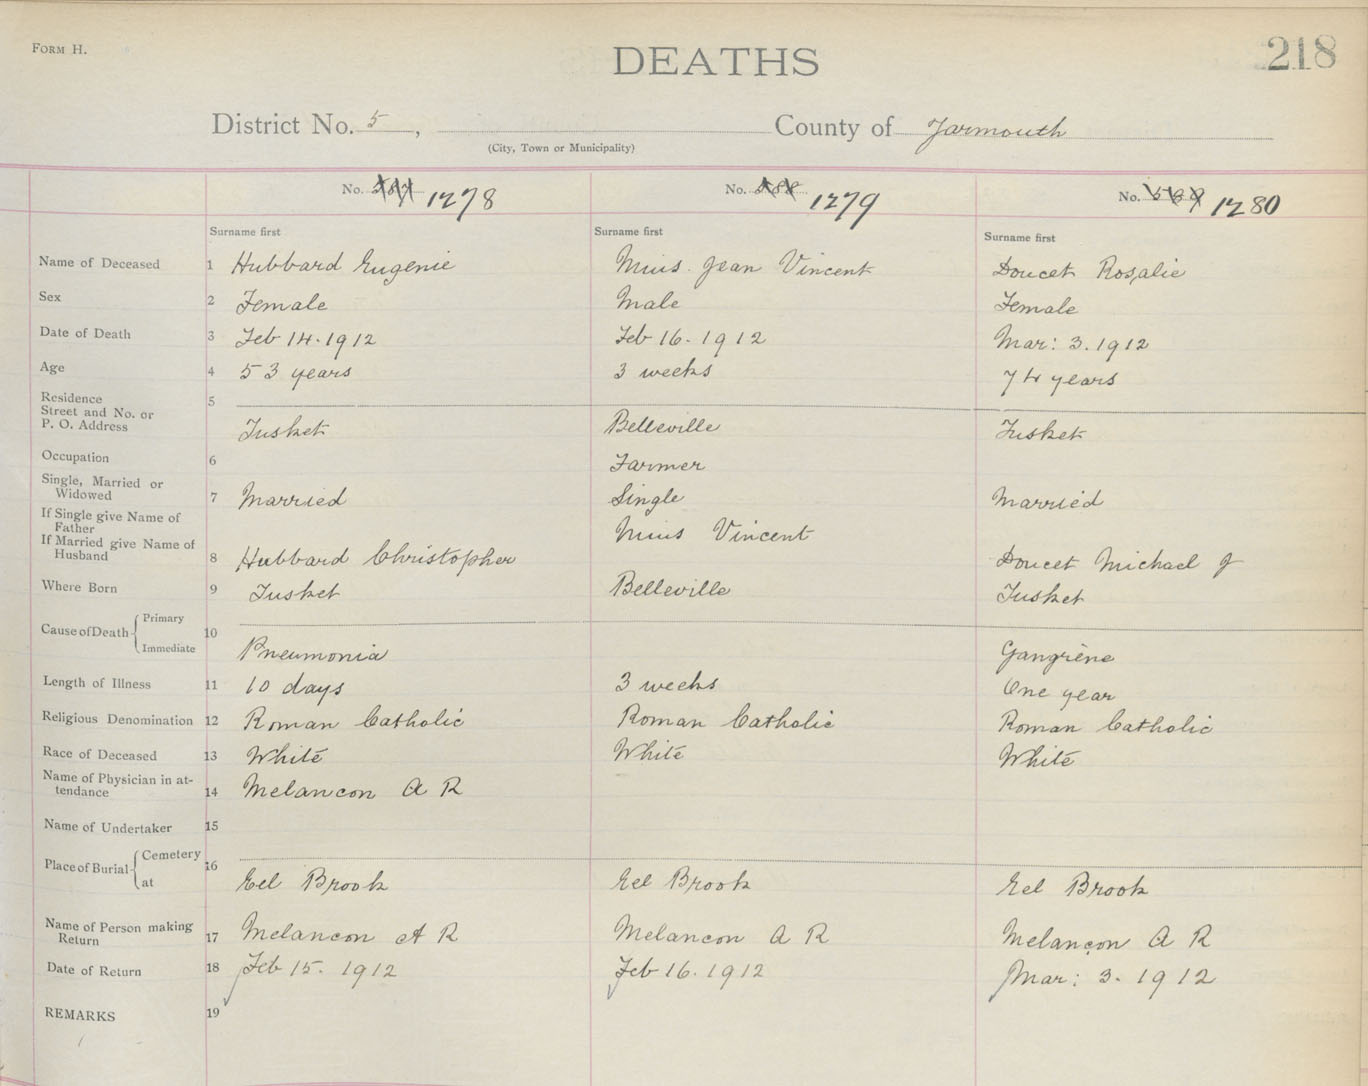 FORM H.
DEATHS
218
District No. 5, County of Yarmouth
(City, Town or Municipality)
No. 587 1278 No. 588 1279 No. 589 1280
Surname first Surname first Surname first
Name of Deceased 1 Hubbard Eugenie Muis. Jean Vincent Doucet Rosalie
Sex 2 Female Male Female
Date of Death 3 Feb 14. 1912 Feb 16. 1912 Mar: 3. 1912
Age 4 53 years 3 weeks 74 years
Residence 5
Street and No. or
P. O. Address Tusket Belleville Tusket
Occupation 6 Farmer
Single, Married or
Widowed 7 Married Single Married
If Single give Name of
Father Muis Vincent
If Married give Name of
Husband 8 Hubbard Christopher Doucet Michael J
Where Born 9 Tusket Belleville Tusket
Cause of Death Primary 10
Immediate Pneumonia Gangrène
Length of Illness 11 10 days 3 weeks One year
Religious Denomination 12 Roman Catholic Roman Catholic Roman Catholic
Race of Deceased 13 White White White
Name of Physician in at-
tendance 14 Melancon A R
Name of Undertaker 15
Place of Burial Cemetery 16
at Eel Brook Eel Brook Eel Brook
Name of Person making
Return 17 Melancon A R Melancon A R Melançon A R
Date of Return 18 Feb 15. 1912 Feb 16. 1912 Mar: 3. 1912
REMARKS 19